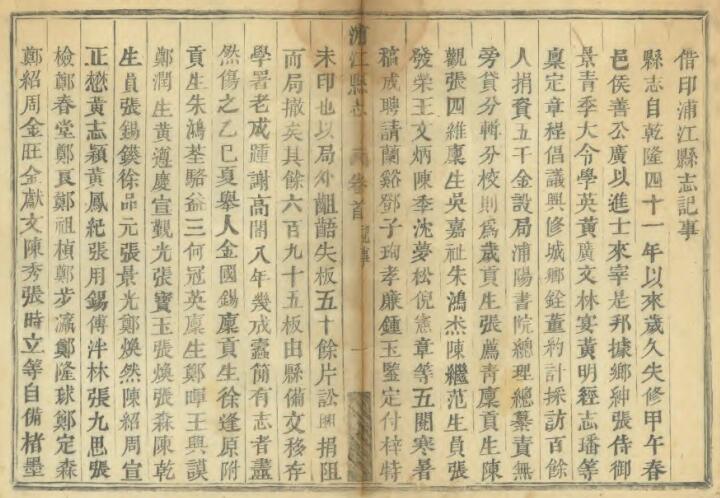 借印浦江縣志記事
縣志自乾隆四十一年以來歲久失修甲午春
邑侯善公廣以進士來宰是邦據鄉紳張侍御
景青季大令學英黃廣文林宴黃明經志璠等
稟定章程倡議興修城鄉銓董約計採訪百餘
人捐資五千金設局浦陽書院總理總纂責無
旁貸分輯分校則爲歲貢生張薦青廩貢生陳
觀張四維廩生吳嘉祉朱鴻杰陳繼范生員張
發榮王文炳陳季沈夢松倪憲章等五閱寒暑
稿成聘請蘭谿鄧子珣孝廉鍾玉鑒定付梓特
浦江縣志 卷首 記事 一
未印也以局外齟齬失板五十餘片訟興捐阻
而局撤矣其餘六百九十五板由縣備文移存
學署老成踵謝高閣八年幾成蠹簡有志者盡
然傷之乙巳夏舉人金國錫廩貢生徐逢原附
貢生朱鴻荃駱益三何冠英廩生鄭暉王興謨
鄭潤生黃遵慶宣觀光張寶玉張煥張森陳乾
生員張錫鍈徐品元張景光鄭煥然陳紹周宣
正懋黃志穎黃鳳紀張用錫傅泮林張九思張
檢鄭春堂鄭夏鄭祖楨鄭步瀛鄭隆球鄭定森
鄭紹周金旺金獻文陳秀張時立等自備楮墨